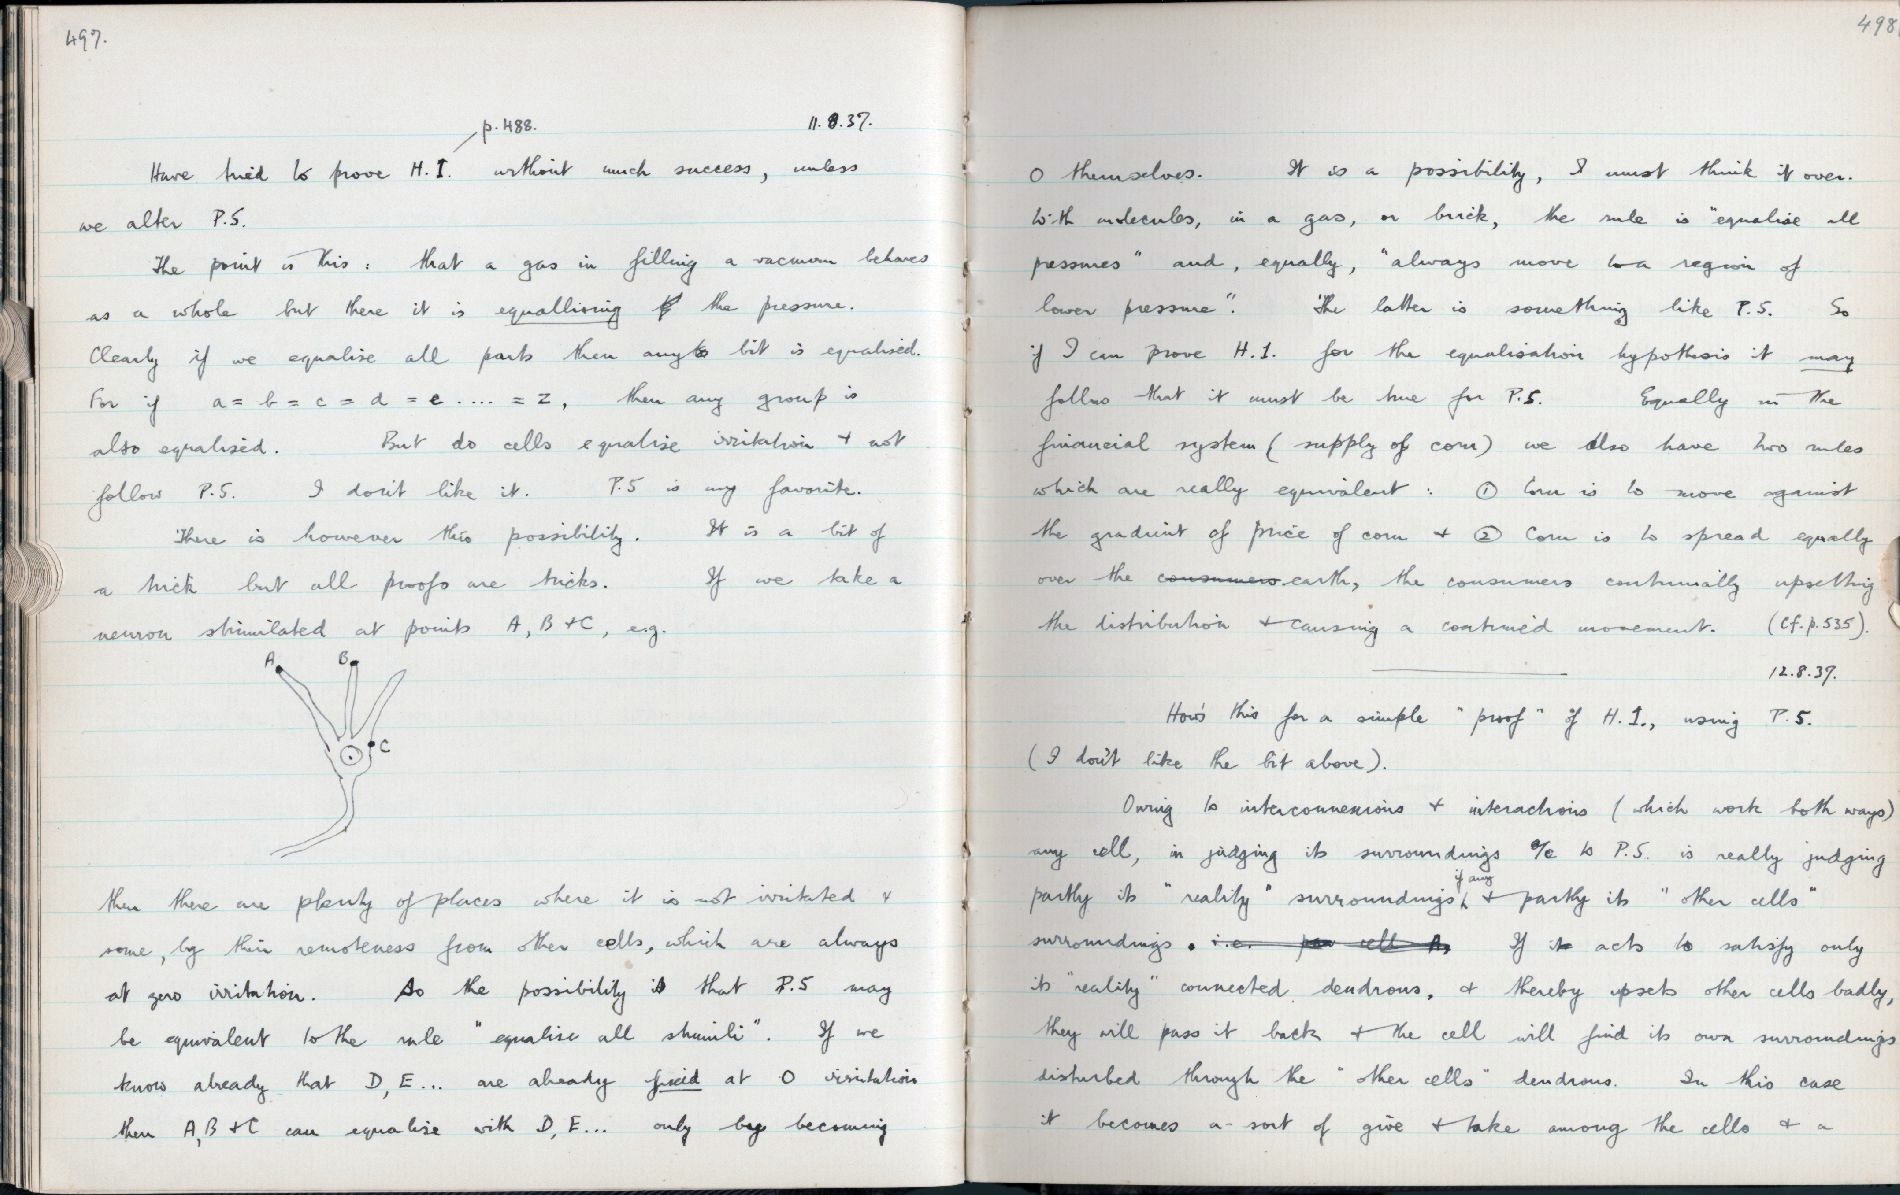 497.
p.488.
11.8.37.
Have tried to prove H.I. without much success, unless
we alter P.5.
The point is this: that a gas in filling a vacuum behaves
as a whole but there it is equallising the pressure.
Clearly if we equalise all parts then any bit is equalised.
For if a = b = c = d = e .... = z, then any group is
also equalised. But do cells equalise irritation & not
follow P.5. I don't like it. P.5 is my favorite.
There is however this possibility. It is a bit of
a trick but all proofs are tricks. If we take a
neuron stimilated at points A, B & C, e.g.
A
B
C
then there are plenty of places where it is not irritated &
some, by their remoteness from other cells, which are always
at zero irritation. So the possibility is that P.5 may
be equivalent to the rule "equalise all stimuli". If we
know already that D, E... are already fixed at O irritation
then A, B & C can equalise with D, E... only by becoming
498
O themselves. It is a possibility, I must think it over.
With molecules, in a gas, or brick, the rule is "equalise all
pressures" and, equally, "always move to a region of
lower pressure". The latter is something like P.5. So
if I can prove H.I. for the equalisation hypothesis it may
follow that it must be true for P.5. Equally in the
financial system (supply of corn) we also have two rules
which are really equivalent: ① Corn is to move against
the gradient of price of corn & ② Corn is to spread equally
over the consumers earth, the consumers continually upsetting
the distribution & causing a continued movement. (Cf. p.535).
12.8.37.
How's this for a simple "proof" of H.I., using P.5.
(I don't like the bit above).
Owing to interconnexions & interactions (which work both ways)
any cell, in judging its surroundings a/c to P.5. is really judging
if any
partly its "reality" surroundings, & partly its "other cells"
surroundings. i.e. cell If it acts to satisfy only
its "reality" connected dendrons, & thereby upsets other cells badly,
they will pass it back & the cell will find its own surroundings
disturbed through the "other cells" dendrons. In this case
it becomes a sort of give & take among the cells & a